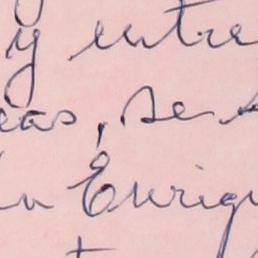 y entre
eas, se s
n Enriqu